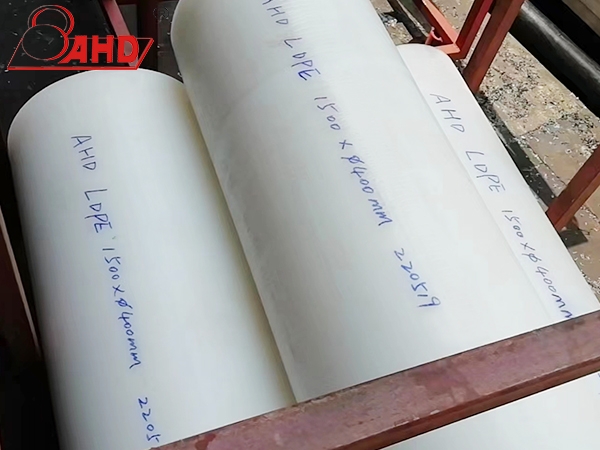 AHD
AHD LDPE 1500×φ400mm 2205
AHD LDPE 1500×φ400mm 220519
AHD LDPE 1500×φ400mm